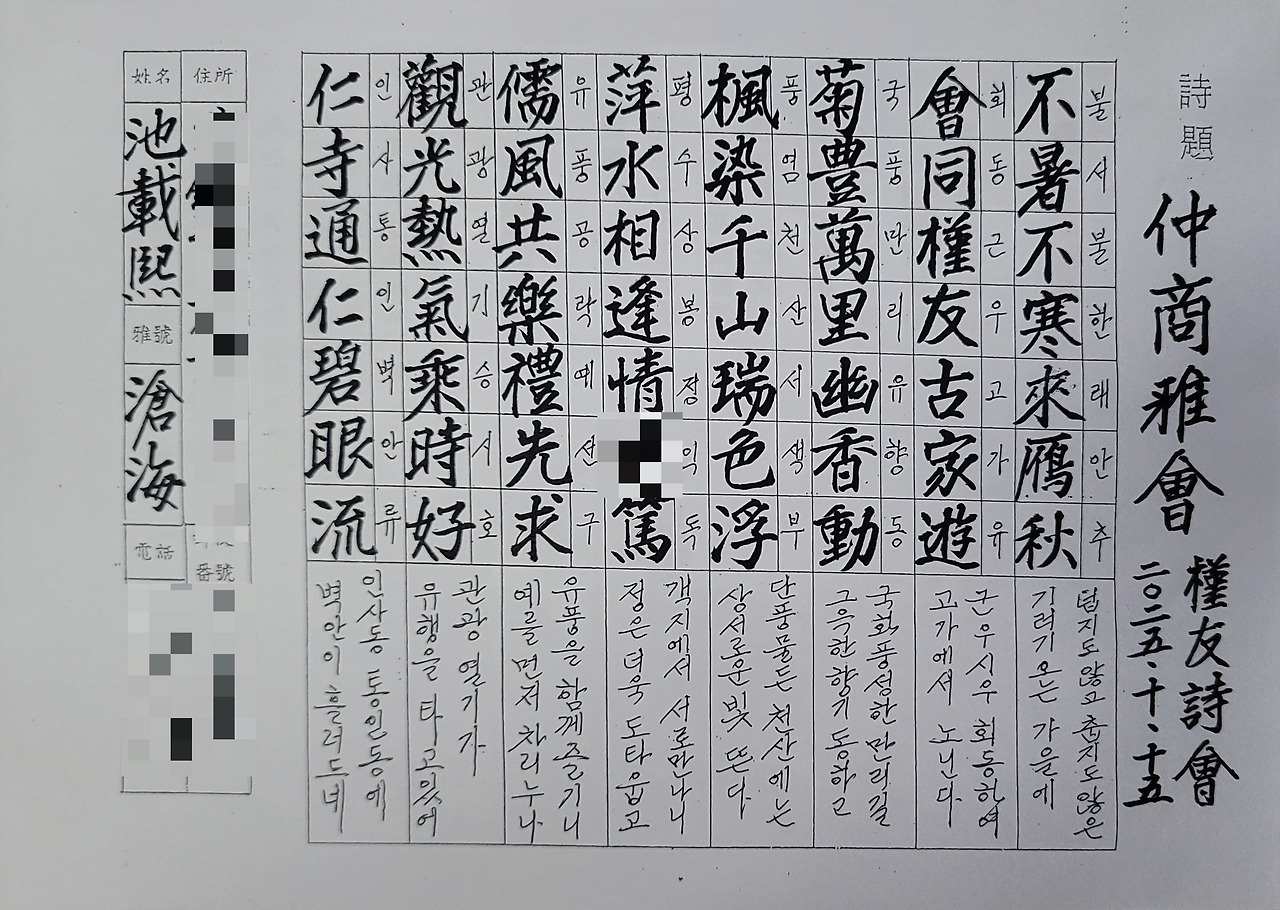 詩題
仲商雅會
槿友詩會
二〇二五·十·十五
不暑不寒來鴈秋
불서불한래안추
덥지도않고춥지도않은
기러기온는 가을에
會同槿友古家遊
회동근우고가유
근우시우 회동하여
고가에서 노닌다
菊豊萬里幽香動
국풍만리유향동
국화풍성한 만리길
그윽한향기 동하고
楓染千山瑞色浮
풍염천산서색부
단풍물든 천산에는
상서로운빛 뜬다
萍水相逢情 篤
평수상봉정익독
객지에서 서로만나니
정은더욱 도타웁고
儒風共樂禮先求
유풍공락예선구
유풍을 함께즐기니
예를먼저 차리누나
觀光熱氣乘時好
관광열기승시호
관광 열기가
유행을 타고있어
仁寺通仁碧眼流
인사통인벽안류
인사동 통인동에
벽안이 흘러드네
住所
番號
姓名
池載熙
雅號
滄海
電話